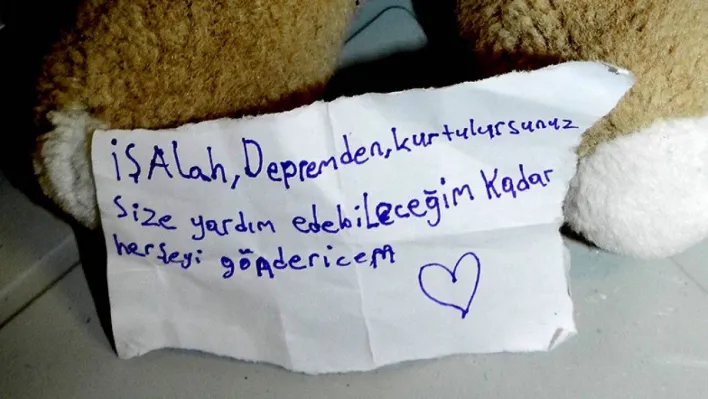 İŞAlah, Depremden, kurtulursunuz
Size yardım edebileceğim Kadar
herşeyi göndericem